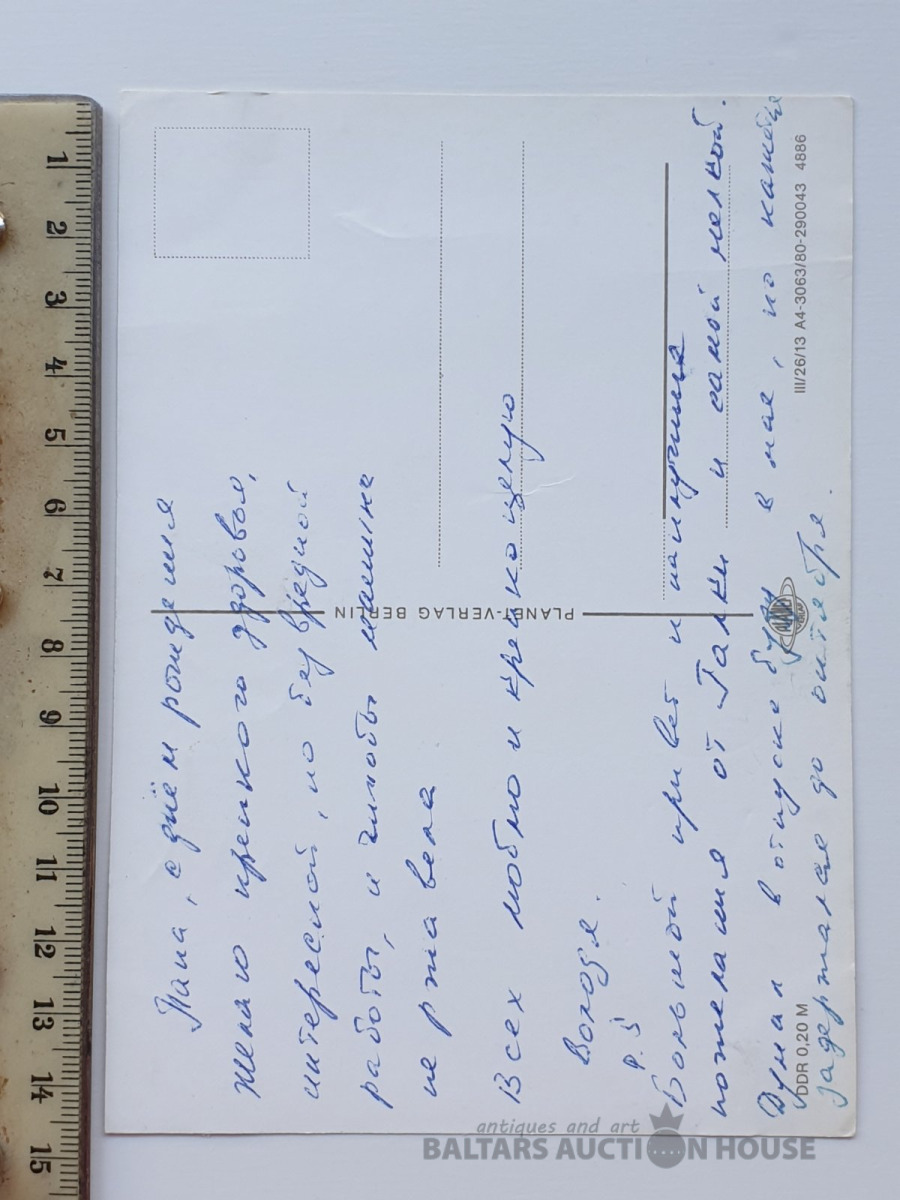 Папа, с днём рожденья
желаю крепкого здоровья,
интересной, но без вредной
работы, и чтобы машина
не ржавела
Всех люблю и крепко целую
Володя.
P.S
Большой привет и наилучшие
пожелания от Гальки и самой мелкой.
Думал в отпуске буду в мае, но
задержался до октября.
PLANET-VERLAG BERLIN
DDR 0,20 M
III/26/13 A4-3063/80-290043 4886
1
2
3
4
5
6
7
8
9
10
11
12
13
14
15
antiques and art
BALTARS AUCTION HOUSE